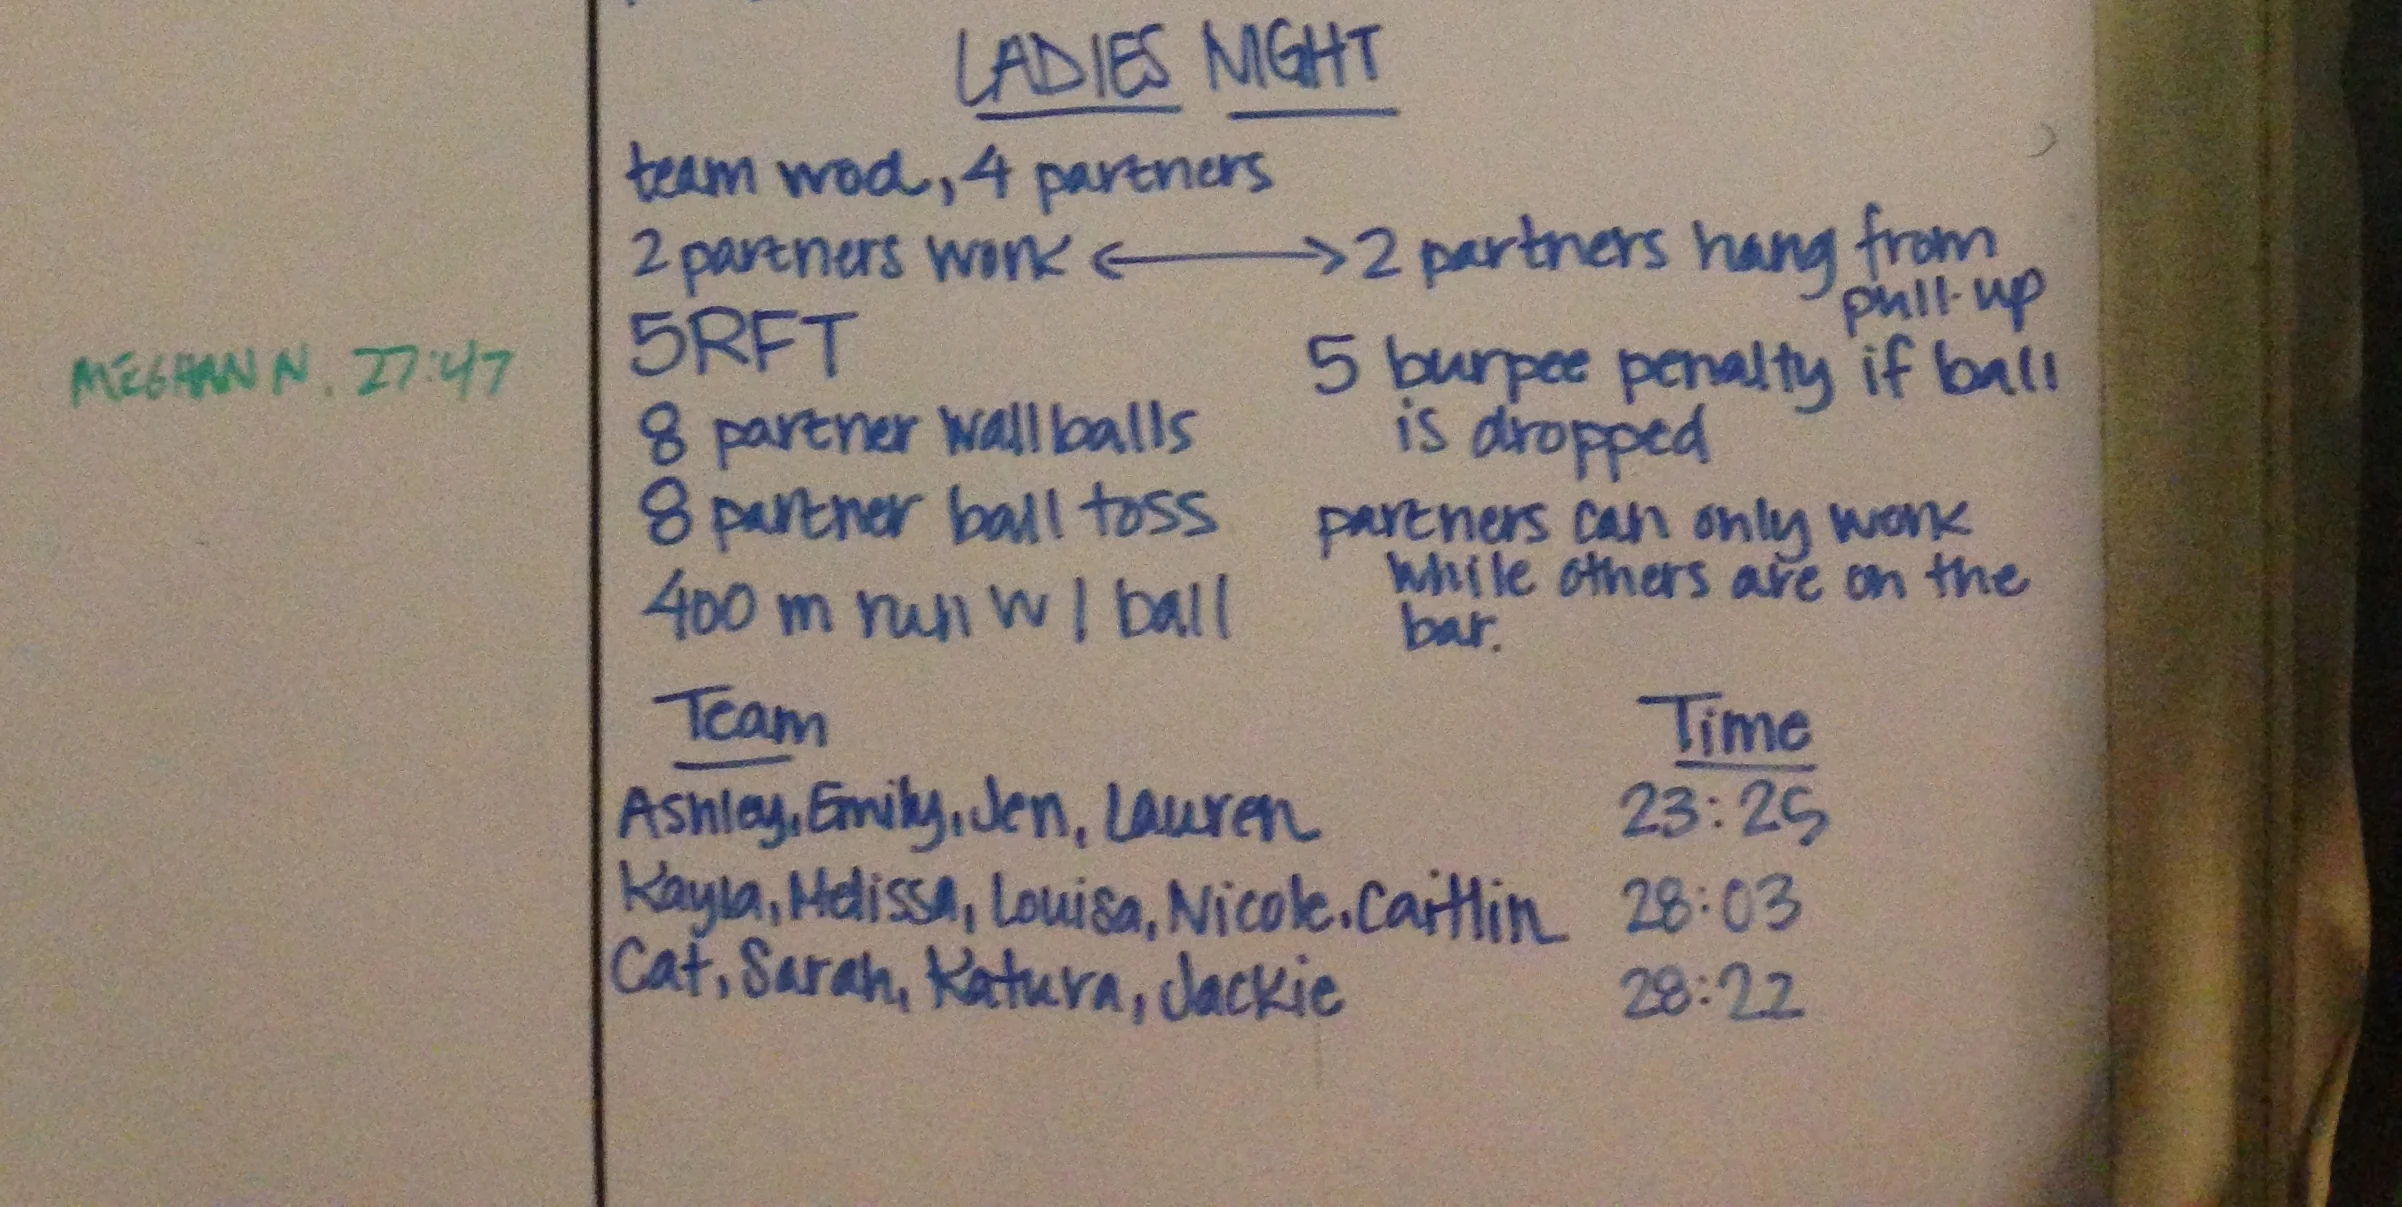 LADIES NIGHT
team wod, 4 partners
2 partners work <-> 2 partners hang from
pull-up
5RFT
5 burpee penalty if ball
is dropped
8 partner wallballs
8 partner ball toss
partners can only work
while others are on the
bar.
400 m run w/ ball
MEGHAN N. 27:47
Team Time
Ashley, Emily, Jen, Lauren 23:25
Kayla, Melissa, Louisa, Nicole, Caitlin 28:03
Cat, Sarah, Katura, Jackie 28:22